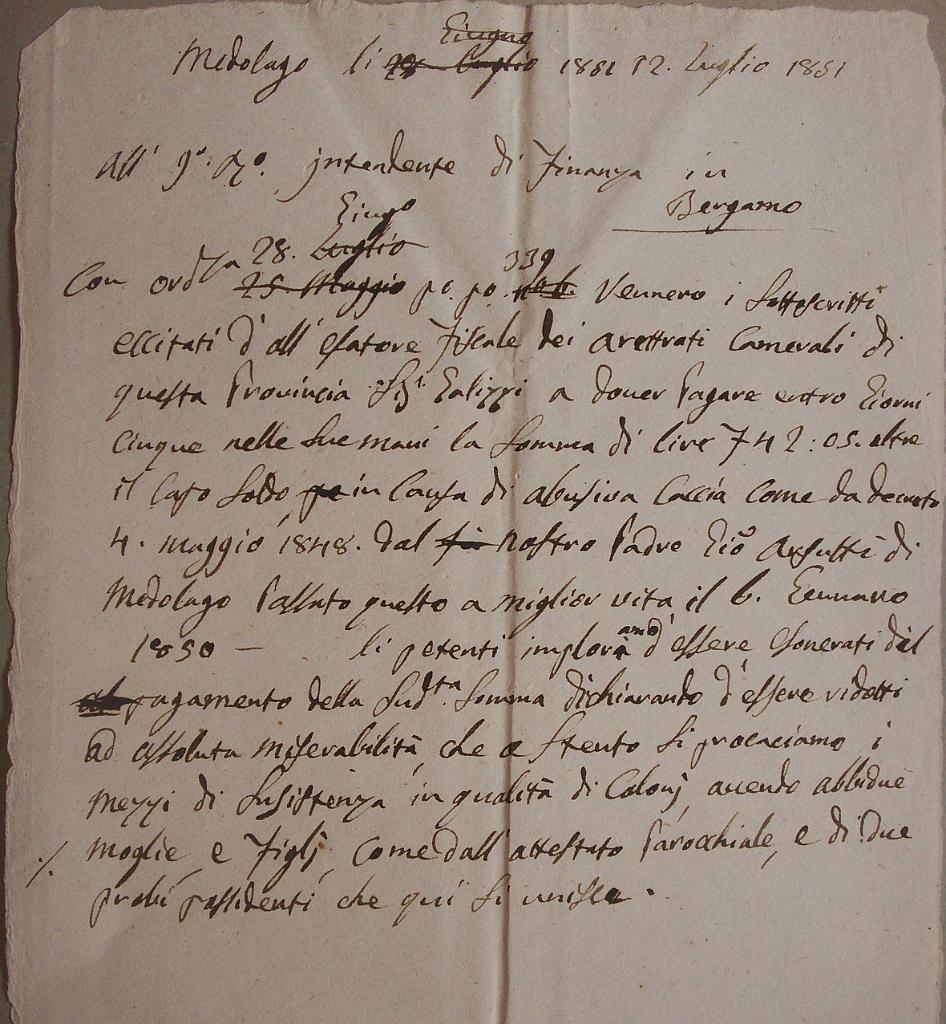 Giugno
Medolago li 28 Luglio 1851 12. Luglio 1851
All' I. R. Intendente di Finanza in
Bergamo
Giugo
28. Luglio
339
Con ord.za 25 Maggio po. po. vennero i Sottoscritti
eccitati d'all' esatore Fiscale dei arettrati Camerali di
questa Provincia Sig. Galizzi a dover Pagare entro Giorni
Cinque nelle Sue mani la Somma di lire 742:05. oltre
il Capo Soldo in Causa di abusiva Caccia Come da decreto
4. maggio 1848. dal fu nostro Padre Gio Arsuffi di
Medolago Passato questo a miglior vita il 6. Gennaro
1850 — li petenti implorano d'essere esonerati dal
al pagamento della Sud.ta Somma dichiarando d'essere ridotti
ad assoluta miserabilità, che a stento si procaciamo i
mezzi di Susistenza in qualità di Colonj, avendo abbidue
./. moglie, e Figlj, Come dall' attestato Parochiale, e di due
probi possidenti che qui si unisce.